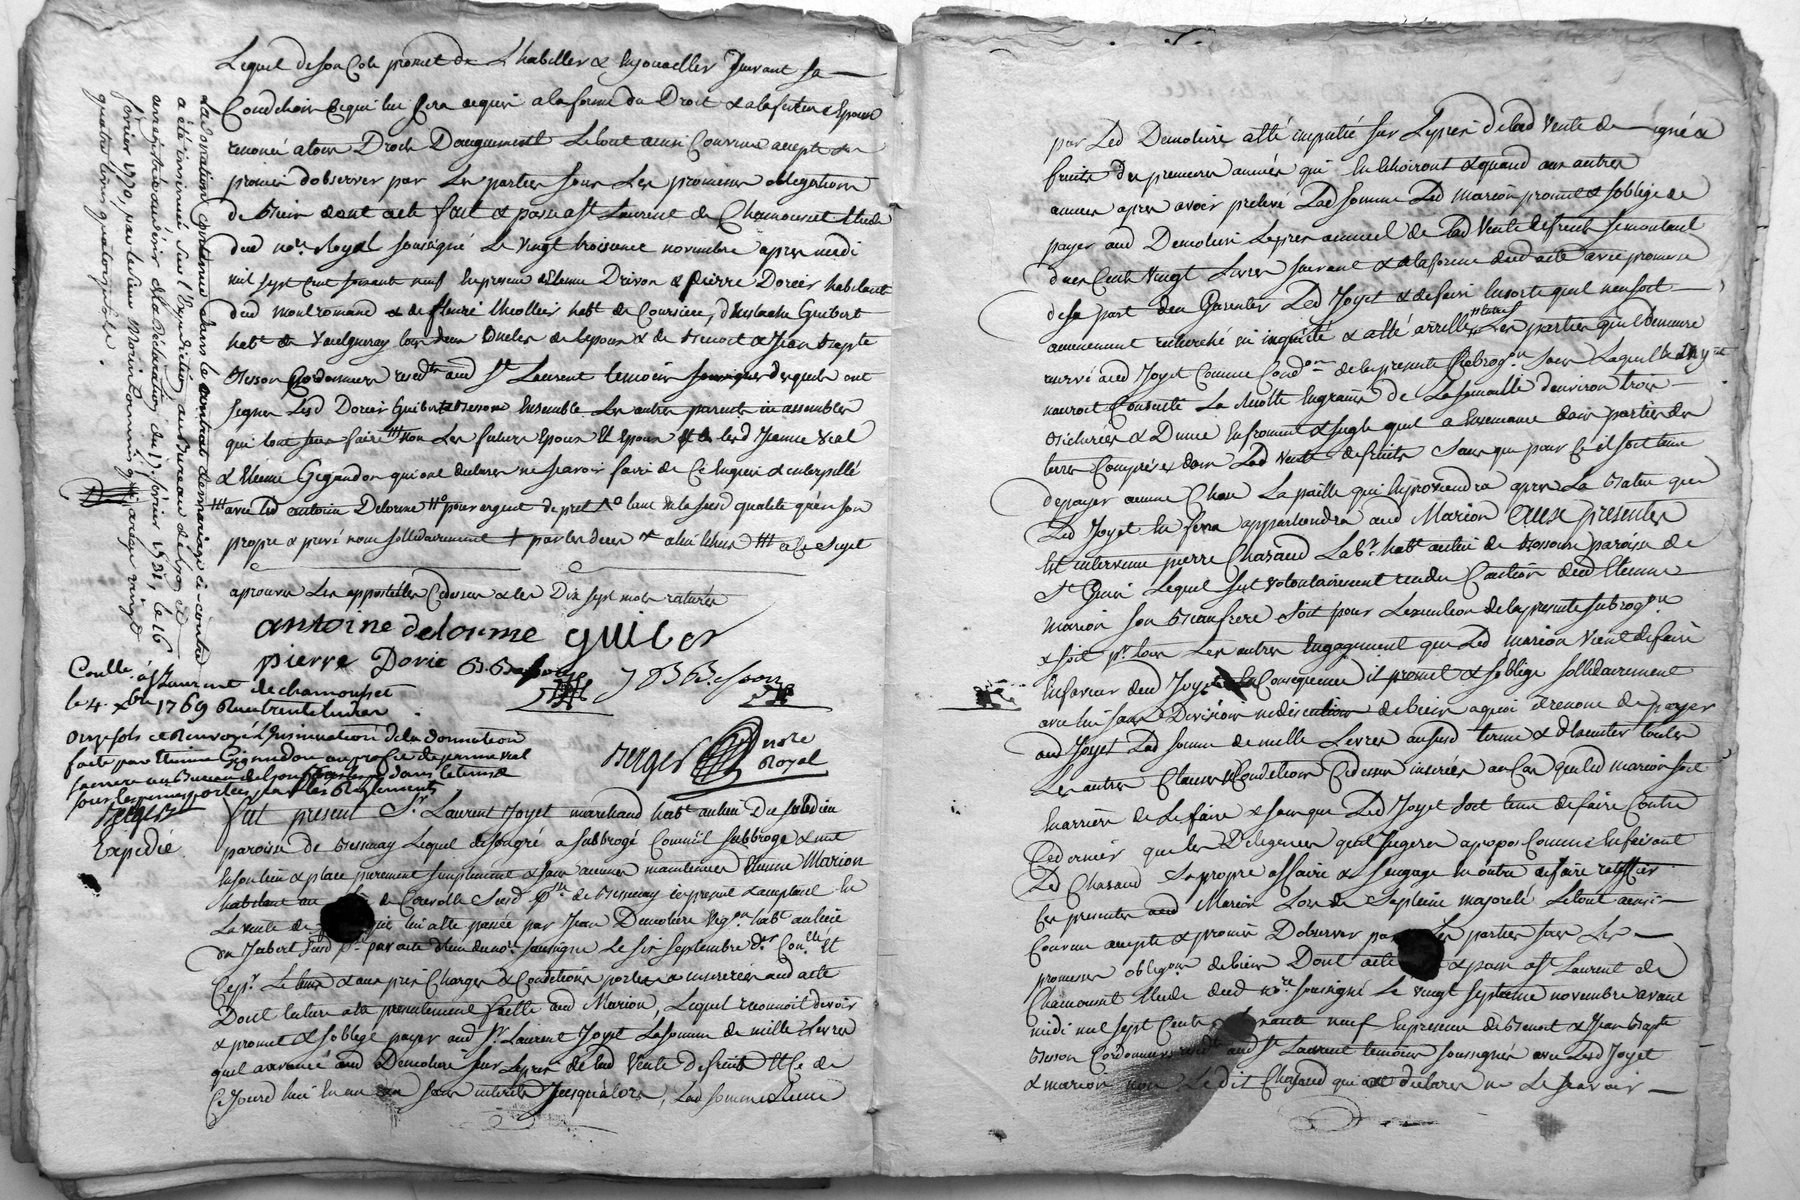 Lequel de son Coté promet de L'habiller & Enjouaeller Suivant sa
Condition ce qui lui sera acquis a la forme du Droit & a la future Epouse
renoncé a tous Droits Daugument Le tout ainsi Convenu accepté &
promis d'observer par Les parties sous Les promesses obligations
de Biens dont acte fait & passé a St Laurent de Chamousset Etude
dud nore Royal soussigné Le vingt troisieme novembre apres midi
mil sept Cent soixante neuf En presence d'Etienne Drivon & pierre Dorier habitant
dud montromand & de fleurie habt de Coursieu, d'Eustache Guibert
habt de Vaulgneray tous deux oncles de l'epoux & de Benoit & Jean Bapte
Besson Cordonniers resedts aud St Laurent temoins desquels ont
signés Lesd Dorier Guibert & Besson Ensemble Les autres parents ici assemblés
qui l'ont sceu faire non Les future Epoux Et Epouse lesd Jeanne Vial
& Etienne Gigandon qui ont déclarés ne sçavoir faire de Ce Enquis & interpellé
avec Led antoine Delorme pour argent de pret tant en la susd qualité qu'en son
propre & privé nom sollidairement par les deux a lui Echus a Ce Sujet
aprouvés Les appostilles Cidessus & les Dix sept mots raturés
antoine delorme Guiber
pierre Dorie B. Besson J B Besson
Berger nore Royal
La donation contenue dans le contrat de mariage ci-contre
a été insinuée sur l'Expédition au Bureau de Lyon Et
enregistrée au desir de la Déclaration du 17 fevrier 1731, le 16
fevrier 1770, par le sieur qui a reçu vingt
quatre livres quatorze sols.
Coulle. à St Laurent de chamousset
le 4 xbre 1769 Reçu trente Livres
onze sols & Renvoyé L'Insinuation de la donnation
faite par Etienne Gigandon au profit de jeanne vial
sa mere au Bureau de Lyon dans le temps
sous les peines portées par les Reglements
Berger
Expedié
fut present Sr. Laurent Joyet marchand habt au lieu Du
paroisse de Bessenay Lequel de son gré a subbrogé Comme il subbroge & met
En son lieu & place purement simplement & sans aucunes maintenues Etienne Marion
habitant au de Susd pse de Bessenay ici present & acceptant En
La vente de qui lui a été passée par Jean Demoliere Vigon habt au lieu
du Jubert Susd pse par acte Reçu du nore soussigné Le six Septembre Dr Conllé Et
aux prix Charges & Conditions portées & inserées aud acte
Dont lecture a été presentement faitte aud Marion, Lequel reconnoit devoir
& promet & s'oblige payer aud Sr. Laurent Joyet La somme de mille Livres
quil a avancé aud Demoliere sur Le prix de lad Vente De fruits Et Ce de
Ce Jourd hui En un an sans interets Jusqu'alors, Lad somme
par Led Demoliere a été imputée sur Le prix de lad Vente de
fruits des premieres années qui En Echoiront & quand aux autres
années apres avoir prelevé Lad somme Led marion promet & s'oblige de
payer aud Demoliere Le prix annuel de lad Vente de fruits se montant
a deux Cent Vingt Livres suivant & a la forme dud acte avec promesse
de sa part d'en Garentir Led Joyet & de faire En sorte quil n'en soit
aucunement recherché ni inquieté & a été arretté Entre Les parties quil demeure
reservé aud Joyet Comme Condon de la presente subrogon sans Laquelle il n'y
auroit Consenti La recolte En grains de La semaille d'environ trois
Bicherées & Demie En froment & seigle quil a Ensemencé dans parties des
terres Comprises dans Lad Vente de fruits sans que pour Ce il soit tenu
de payer aucune Chose La paille qui En proviendra apres La Batue que
Led Joyet En fera appartiendra aud Marion Aux presentes
Est intervenu pierre Chazaud Labr. habt au lieu de Bessone paroisse de
St Lequel s'est volontairement rendu Caution dud Etienne
Marion son Beaufrere soit pour L'execution de la presente Subrogon
& soit pr tous Les autres Engagement que Led marion vient de faire
En faveur dud Joyet En Consequence il promet & s'oblige sollidairement
avec lui sans Division ni discution de biens a quoi il renonce de payer
aud Joyet Lad somme de mille Livres au susd terme & d'Executer toutes
Les autres Clauses & Conditions Cidessus inserées au Cas que led marion soit
En arriere de Le faire & sans que Led Joyet soit tenu de faire Contre
Ce dernier que les Diligences quil Jugera apropos Comme En faisant
Led Chazaud sa propre affaire & s'engage En outre de faire rattiffier
Ces presentes aud Marion Lors de sa pleine majorité Le tout ainsi
Convenu accepté & promis D'observer par Les parties sous Les
promesses obligons de biens Dont acte & passé a St Laurent de
Chamousset Etude dud nore soussigné Le vingt septieme novembre avant
midi mil sept Cents soixante neuf En presence de Benoit & Jean Bapte
Besson Cordonniers resedts aud St Laurent temoins soussignés avec Lesd Joyet
& marion non Ledit Chazaud qui a déclaré ne Le sçavoir